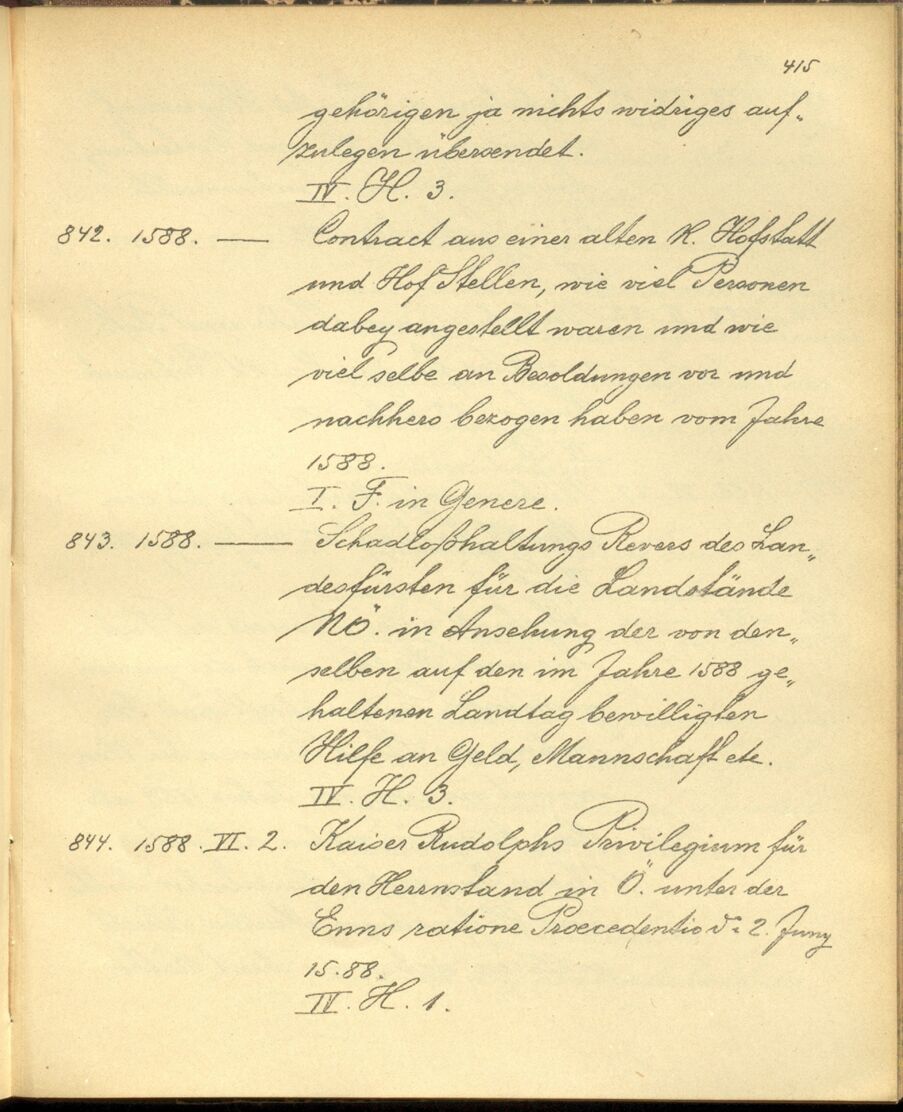 415
gehörigen ja nichts widriges auf„
zulegen übersendet.
IV. H. 3.
842. 1588. — Contract aus einer alten K. Hofstatt
und Hof Stellen, wie viel Personen
dabey angestellt waren und wie
viel selbe an Besoldungen vor und
nachhero bezogen haben vom Jahre
1588.
I. F. in Genere.
843. 1588. — Schadloßhaltungs Revers des Lan„
desfürsten für die Landstände
NÖ. in Ansehung der von den„
selben auf den im Jahre 1588 ge„
haltenen Landtag bewilligten
Hilfe an Geld, Mannschaft etc.
IV. H. 3.
844. 1588. VI. 2. Kaiser Rudolphs Privilegium für
den Herrnstand in Ö. unter der
Enns ratione Praecedentio 2. Juny
15.88.
IV. H. 1.